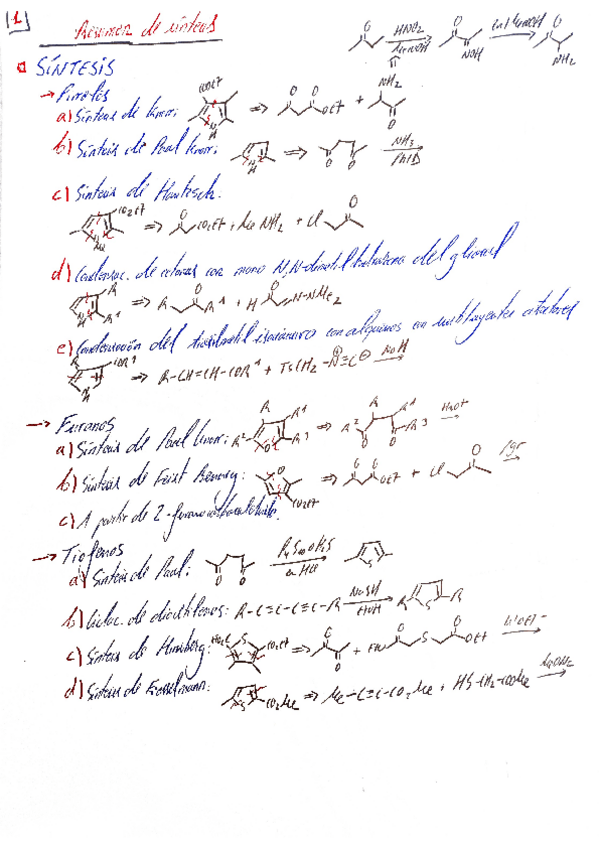 1 Resumen de síntesis
HNO2
MeOH
Zn/MeOH
O
O
NOH
O
NH2
SÍNTESIS
→ Pirroles
a) Síntesis de Knorr:
COOEt
N
H
⇒
O O
OEt
+
NH2
O
b) Síntesis de Paal Knorr:
N
H
⇒
O O
NH3
c) Síntesis de Hantzsch.
CO2Et
N
Me
⇒
O
CO2Et + Me NH2 + Cl
O
d) Condensac. de cetonas con mono N,N-dimetilhidrazona del glioxal
R
N
H
R1
⇒ R
O
R1 + H
O
N-NMe2
e) Condensación del tosilmetil isocianuro con alquenos con sustituyentes atractores
R
COR1
N
H
⇒ R-CH=CH-COR1 + TsCH2-N≡C
NaH
→ Furanos
a) Síntesis de Paal Knorr:
R R1
R2 O R3
⇒
R R1
R2 R3
O O
H3O+
b) Síntesis de Feist Benary:
O
CO2Et
⇒
O O
OEt + Cl
O
c) A partir de 2-furanocarbaldehído.
→ Tiofenos
a) Síntesis de Paal:
O O
P4S10 o H2S
en HCl
S
b) Ciclac. de diacetilenos: R-C≡C-C≡C-R
NaSH
EtOH
R S R
c) Síntesis de Hinsberg:
S
CO2Et
⇒
O
O
+
O
S
O
OEt
EtO-
d) Síntesis de Fiesselmann:
S
CO2Me
⇒ Me-C≡C-CO2Me + HS-CH2-COOMe